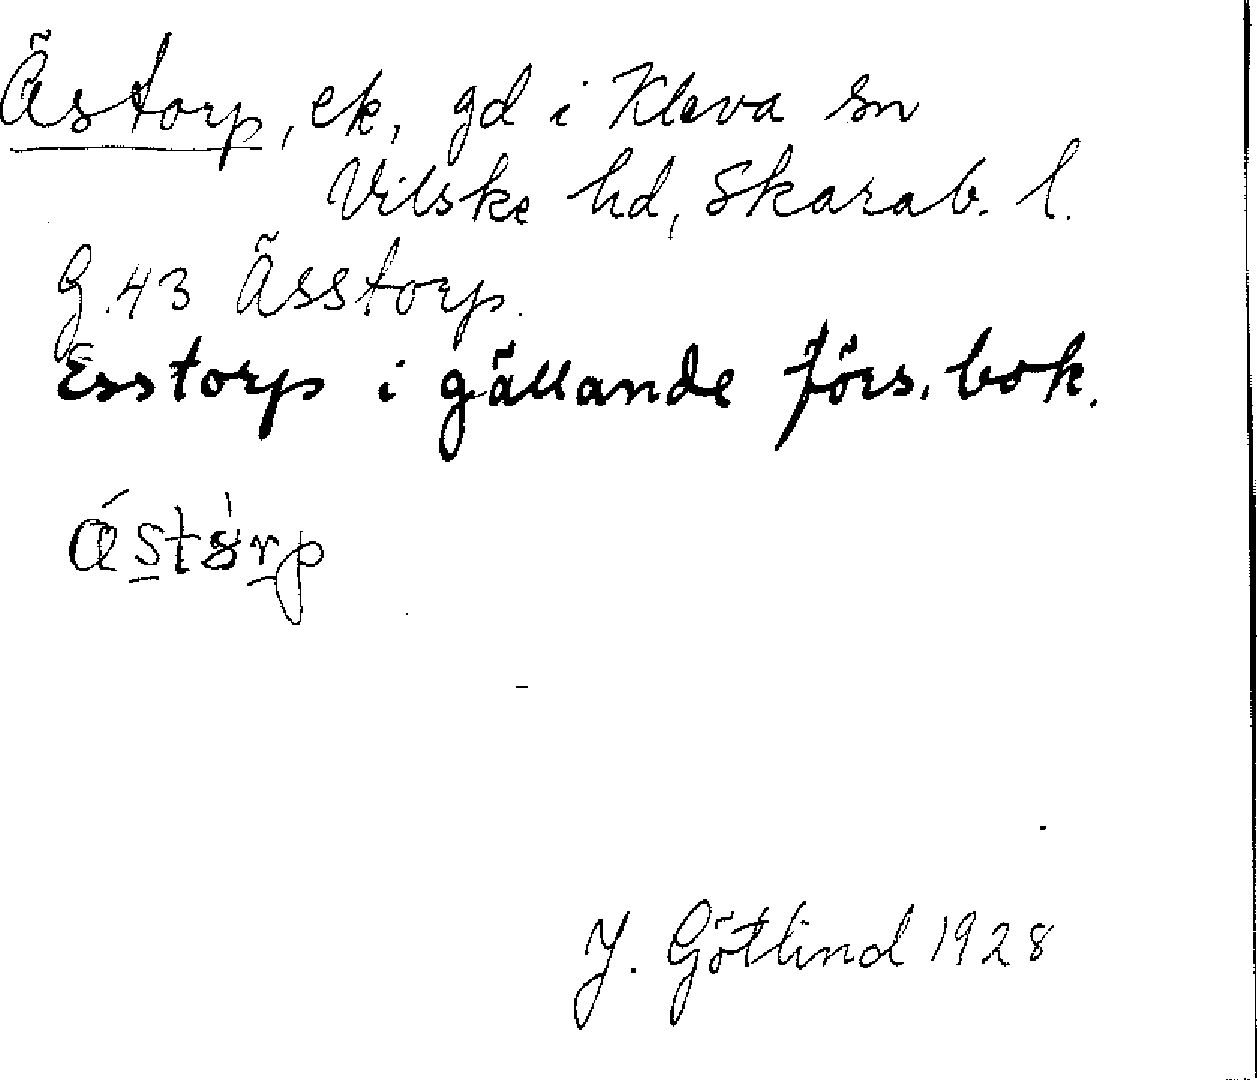 Ästorp, ek, gd i Kleva sn
Vilske hd, Skarab. l.
G.43 Ässtorp.
Esstorp i gällande förs. bok.
J. Götlind 1928